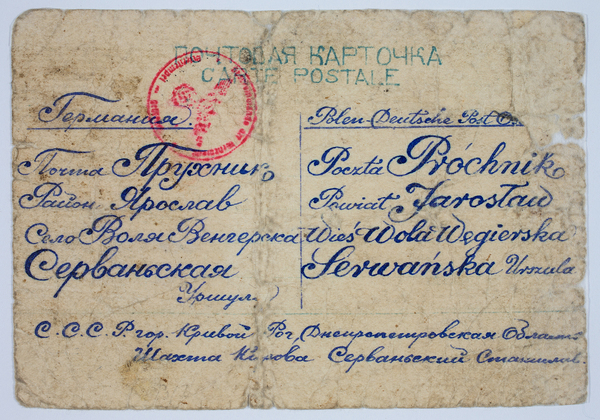 ПОЧТОВАЯ КАРТОЧКА
CARTE POSTALE
Германия
Почта Прухнико
Район Ярослав
Село Воля Венгерска
Серваньская
Уршула
Polen-Deutsche Post
Poczta Próchniko
Powiat Jarosław
Wieś Wola Węgierska
Serwańska Urszula
С.С.С.Р. гор. Кривой Рог, Днепропетровская Область
Шахта Кирова Серваньский Станислав